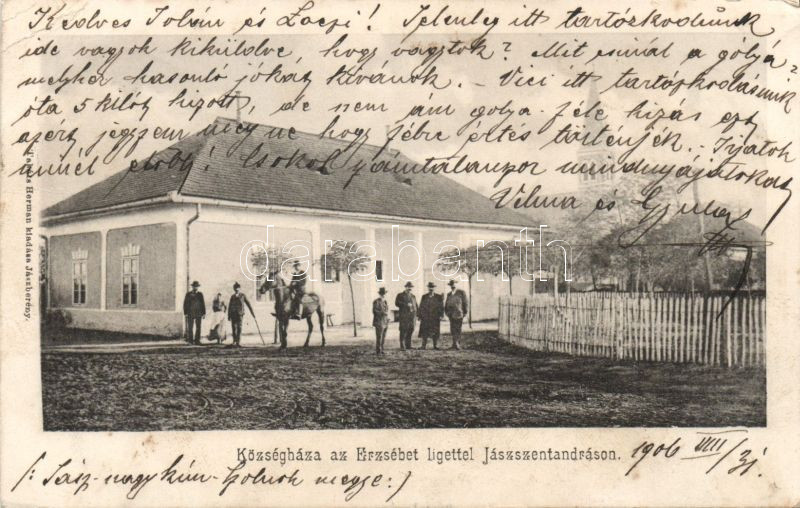 Kedves István és Laczi! Jelenleg itt tartózkodunk
ide vagyok kiküldve, hogy vagytok? Mit csinál a gólya?
melyhez hasonló jókat kívánok. - Vici itt tartózkodásunk
óta 5 kilót hizott, de nem ám gólya féle hizás ez,
azért jegyzem meg ne hogy félre értés történjék. - Írjatok
minél előbb! Csókol számtalanszor mindnyájatokat
Vilma és Gyula
Herman kiadása Jászberény.
darabanth
Községháza az Erzsébet ligettel Jászszentandráson.
1906 VIII/31
(: Jász-nagykún-Szolnok megye :)